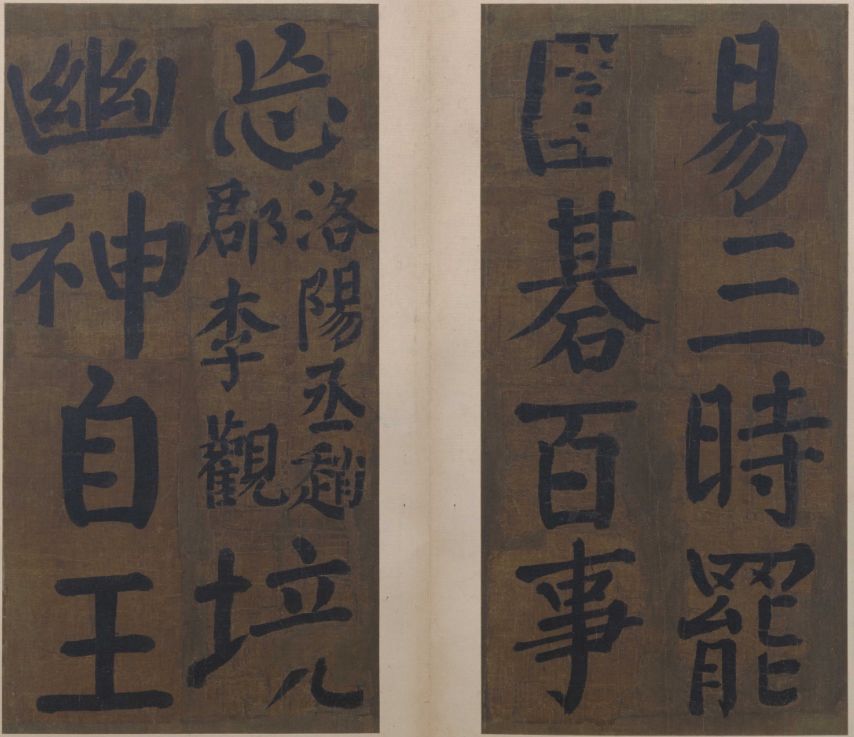 易三時罷
碁百事
忘
洛陽丞趙
郡李觀
境
幽神自王